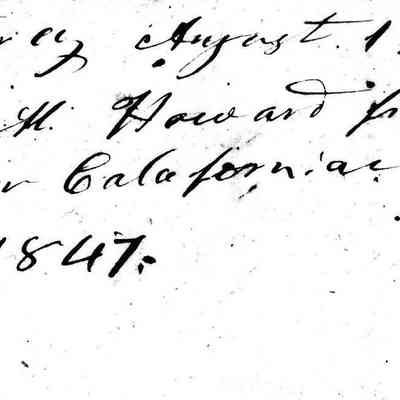 ay August 1
M. Howard f
r Calafornia
1847.